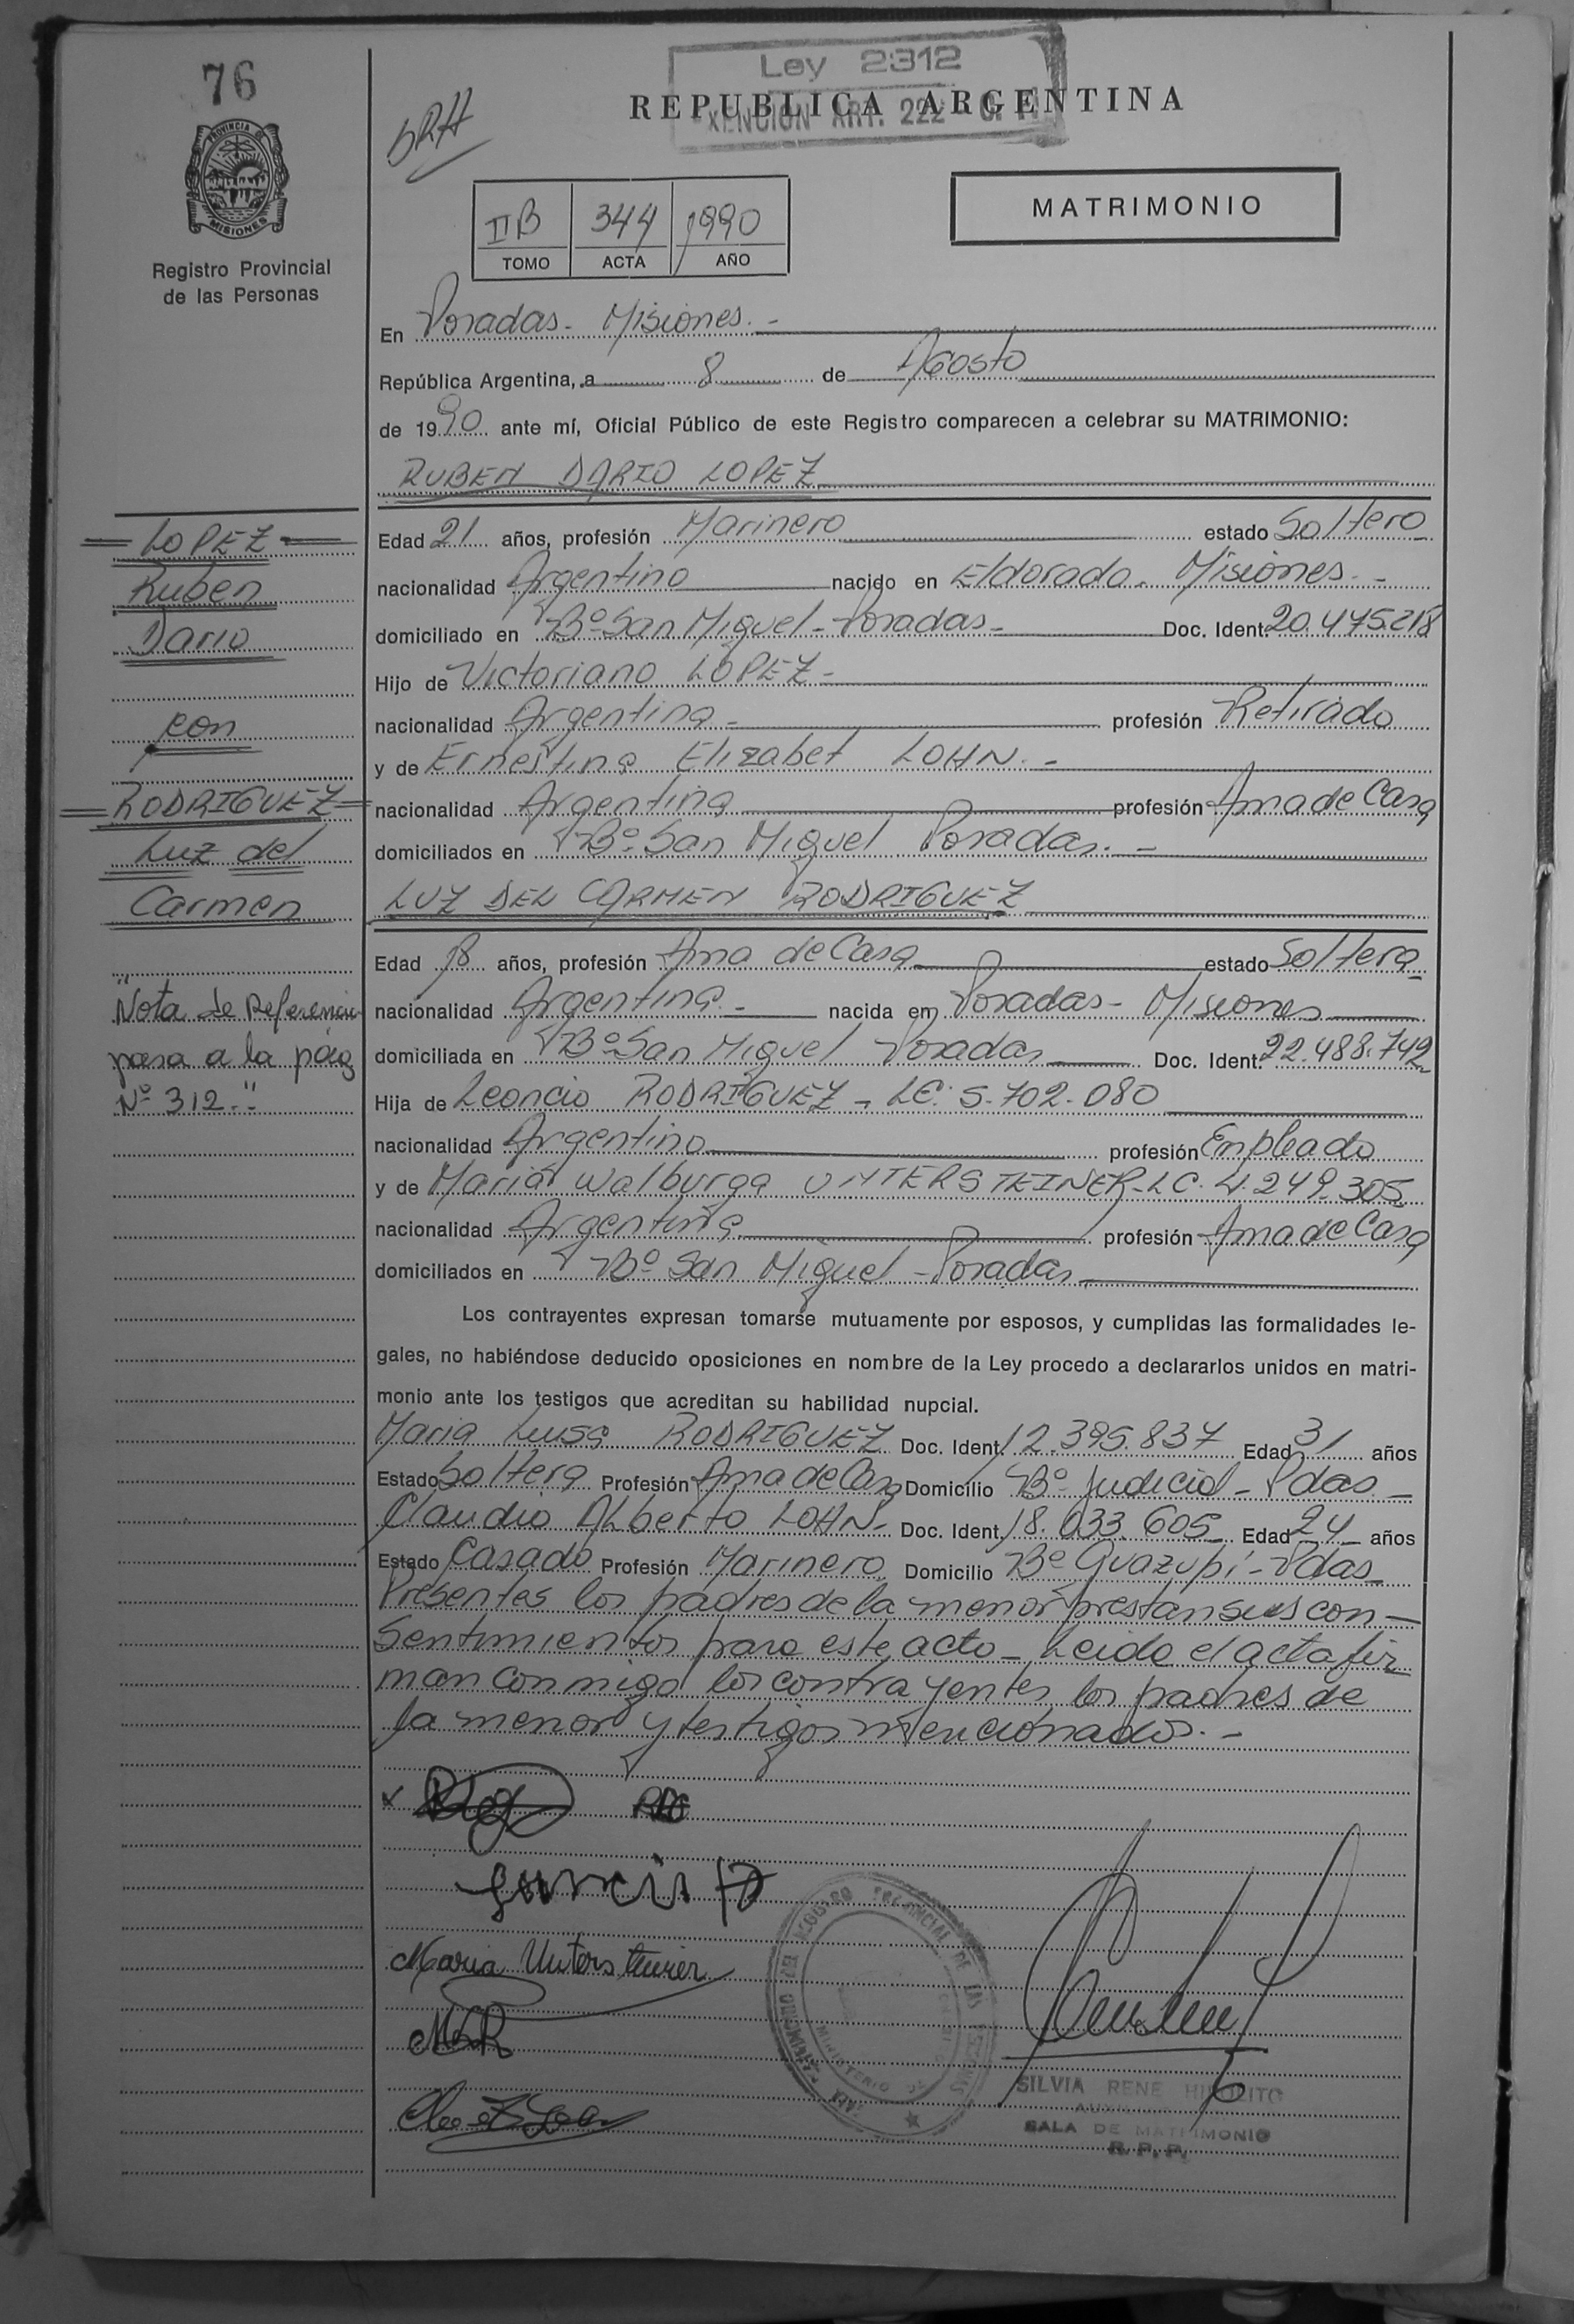 76
Ley 2312
EXENCION ART. 222
REPUBLICA ARGENTINA
PROVINCIA DE
MISIONES
Registro Provincial
de las Personas
II B 344 1990
TOMO ACTA AÑO
MATRIMONIO
En Posadas - Misiones. -
República Argentina, a 8 de Agosto
de 1990 ante mí, Oficial Público de este Registro comparecen a celebrar su MATRIMONIO:
RUBEN DARIO LOPEZ
Edad 21 años, profesión Marinero estado Soltero
nacionalidad Argentino nacido en Eldorado - Misiones. -
domiciliado en Bº San Miguel - Posadas - Doc. Ident. 20.475.218
Hijo de Victoriano LOPEZ -
nacionalidad Argentina - profesión Retirado
y de Ernestina Elizabet LOHN. -
nacionalidad Argentina profesión Ama de Casa
domiciliados en Bº San Miguel Posadas. -
LUZ DEL CARMEN RODRIGUEZ
Edad 18 años, profesión Ama de Casa estado Soltera
nacionalidad Argentina - nacida en Posadas - Misiones
domiciliada en Bº San Miguel Posadas Doc. Ident. 22.488.742
Hija de Leoncio RODRIGUEZ - LE. 5.702.080
nacionalidad Argentino profesión Empleado
y de Maria Walburga UNTERSTEINER - LC. 4.249.305
nacionalidad Argentina profesión Ama de Casa
domiciliados en Bº San Miguel - Posadas
Los contrayentes expresan tomarse mutuamente por esposos, y cumplidas las formalidades le-
gales, no habiéndose deducido oposiciones en nombre de la Ley procedo a declararlos unidos en matri-
monio ante los testigos que acreditan su habilidad nupcial.
Maria Luisa RODRIGUEZ Doc. Ident. 12.395.837 Edad 31 años
Estado Soltera Profesión Ama de Casa Domicilio Bº Judicial - Pdas -
Claudio Alberto LOHN - Doc. Ident. 18.033.605 Edad 24 años
Estado Casado Profesión Marinero Domicilio Bº Guazupi - Pdas -
Presentes los padres de la menor prestan sus con-
sentimientos para este acto - Leido el acta fir
man conmigo los contrayentes los padres de
la menor y testigos mencionados. -
LOPEZ
Ruben
Dario
con
RODRIGUEZ
Luz del
Carmen
"Nota de Referencia
pasa a la pág
Nº 312."
Maria Untersteiner
MLR
REGISTRO PROVINCIAL DE LAS PERSONAS
MINISTERIO DE
SILVIA RENE HIPOLITO
SALA DE MATRIMONIO
R. P. P.